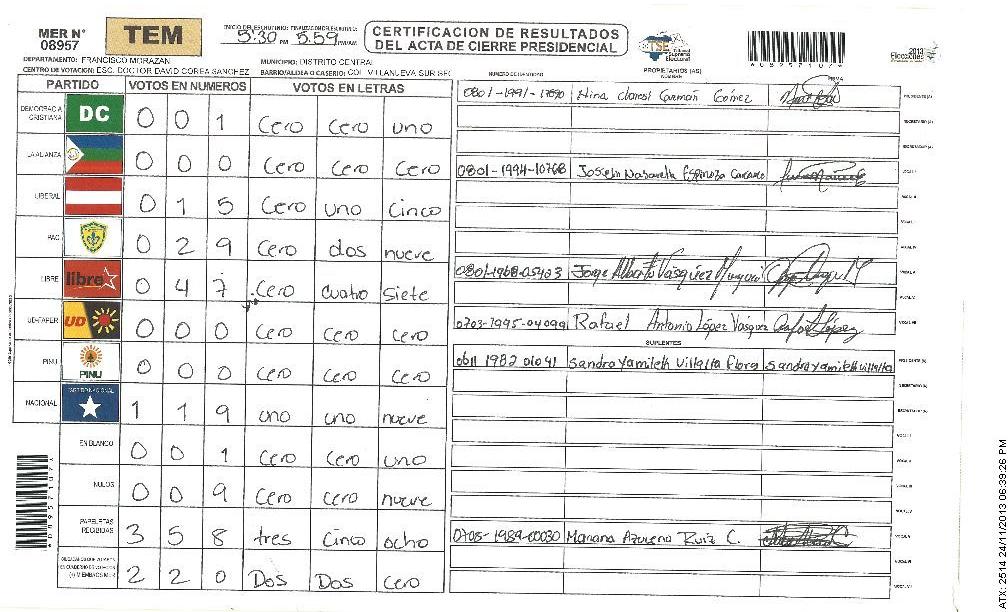 MER N° 08957
TEM
INICIO DEL ESCRUTINIO: 5:30 PM FINALIZACION DEL ESCRUTINIO: 5:59 PM/AM
CERTIFICACION DE RESULTADOS
DEL ACTA DE CIERRE PRESIDENCIAL
TSE Tribunal Supremo Electoral
2013 Elecciones
DEPARTAMENTO: FRANCISCO MORAZAN MUNICIPIO: DISTRITO CENTRAL
CENTRO DE VOTACION: ESC. DOCTOR DAVID COREA SANCHEZ BARRIO/ALDEA O CASERIO: COL VILLANUEVA SUR SEC
PARTIDO VOTOS EN NUMEROS VOTOS EN LETRAS
DEMOCRACIA CRISTIANA DC 0 0 1 Cero Cero uno
LA ALIANZA 0 0 0 Cero Cero Cero
LIBERAL 0 1 5 Cero uno Cinco
PAC 0 2 9 Cero dos nueve
LIBRE libre 0 4 7 Cero cuatro siete
UD-FAPER UD 0 0 0 Cero Cero Cero
PINU PINU 0 0 0 Cero Cero Cero
NACIONAL PARTIDO NACIONAL 1 1 9 uno uno nueve
EN BLANCO 0 0 1 Cero Cero uno
NULOS 0 0 9 Cero Cero nueve
PAPELETAS RECIBIDAS 3 5 8 tres Cinco ocho
2 2 0 Dos Dos Cero
PROPIETARIOS (AS)
NUMERO DE IDENTIDAD NOMBRE FIRMA
Gómez PRESIDENTE (A)
SECRETARIO (A)
0801-1994-10768 Joselin
0801-1968-05403 Jorge Alberto Vásquez
0703-1995-04099 Rafael Antonio López Vásquez
SUPLENTES
0611 1982 01091 Sandra Yamileth Villalta Flores Sandra Yamileth Villalta PRESIDENTE (A)
SECRETARIO (A)
0705-1989-00030 Mariana Azucena Ruiz C.
ATX: 2514 24/11/2013 06:39:26 PM